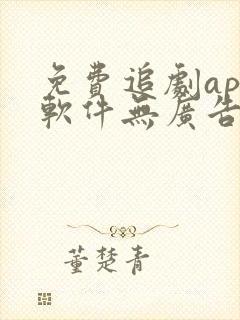 免費追劇ap
軟件無廣告
董楚青